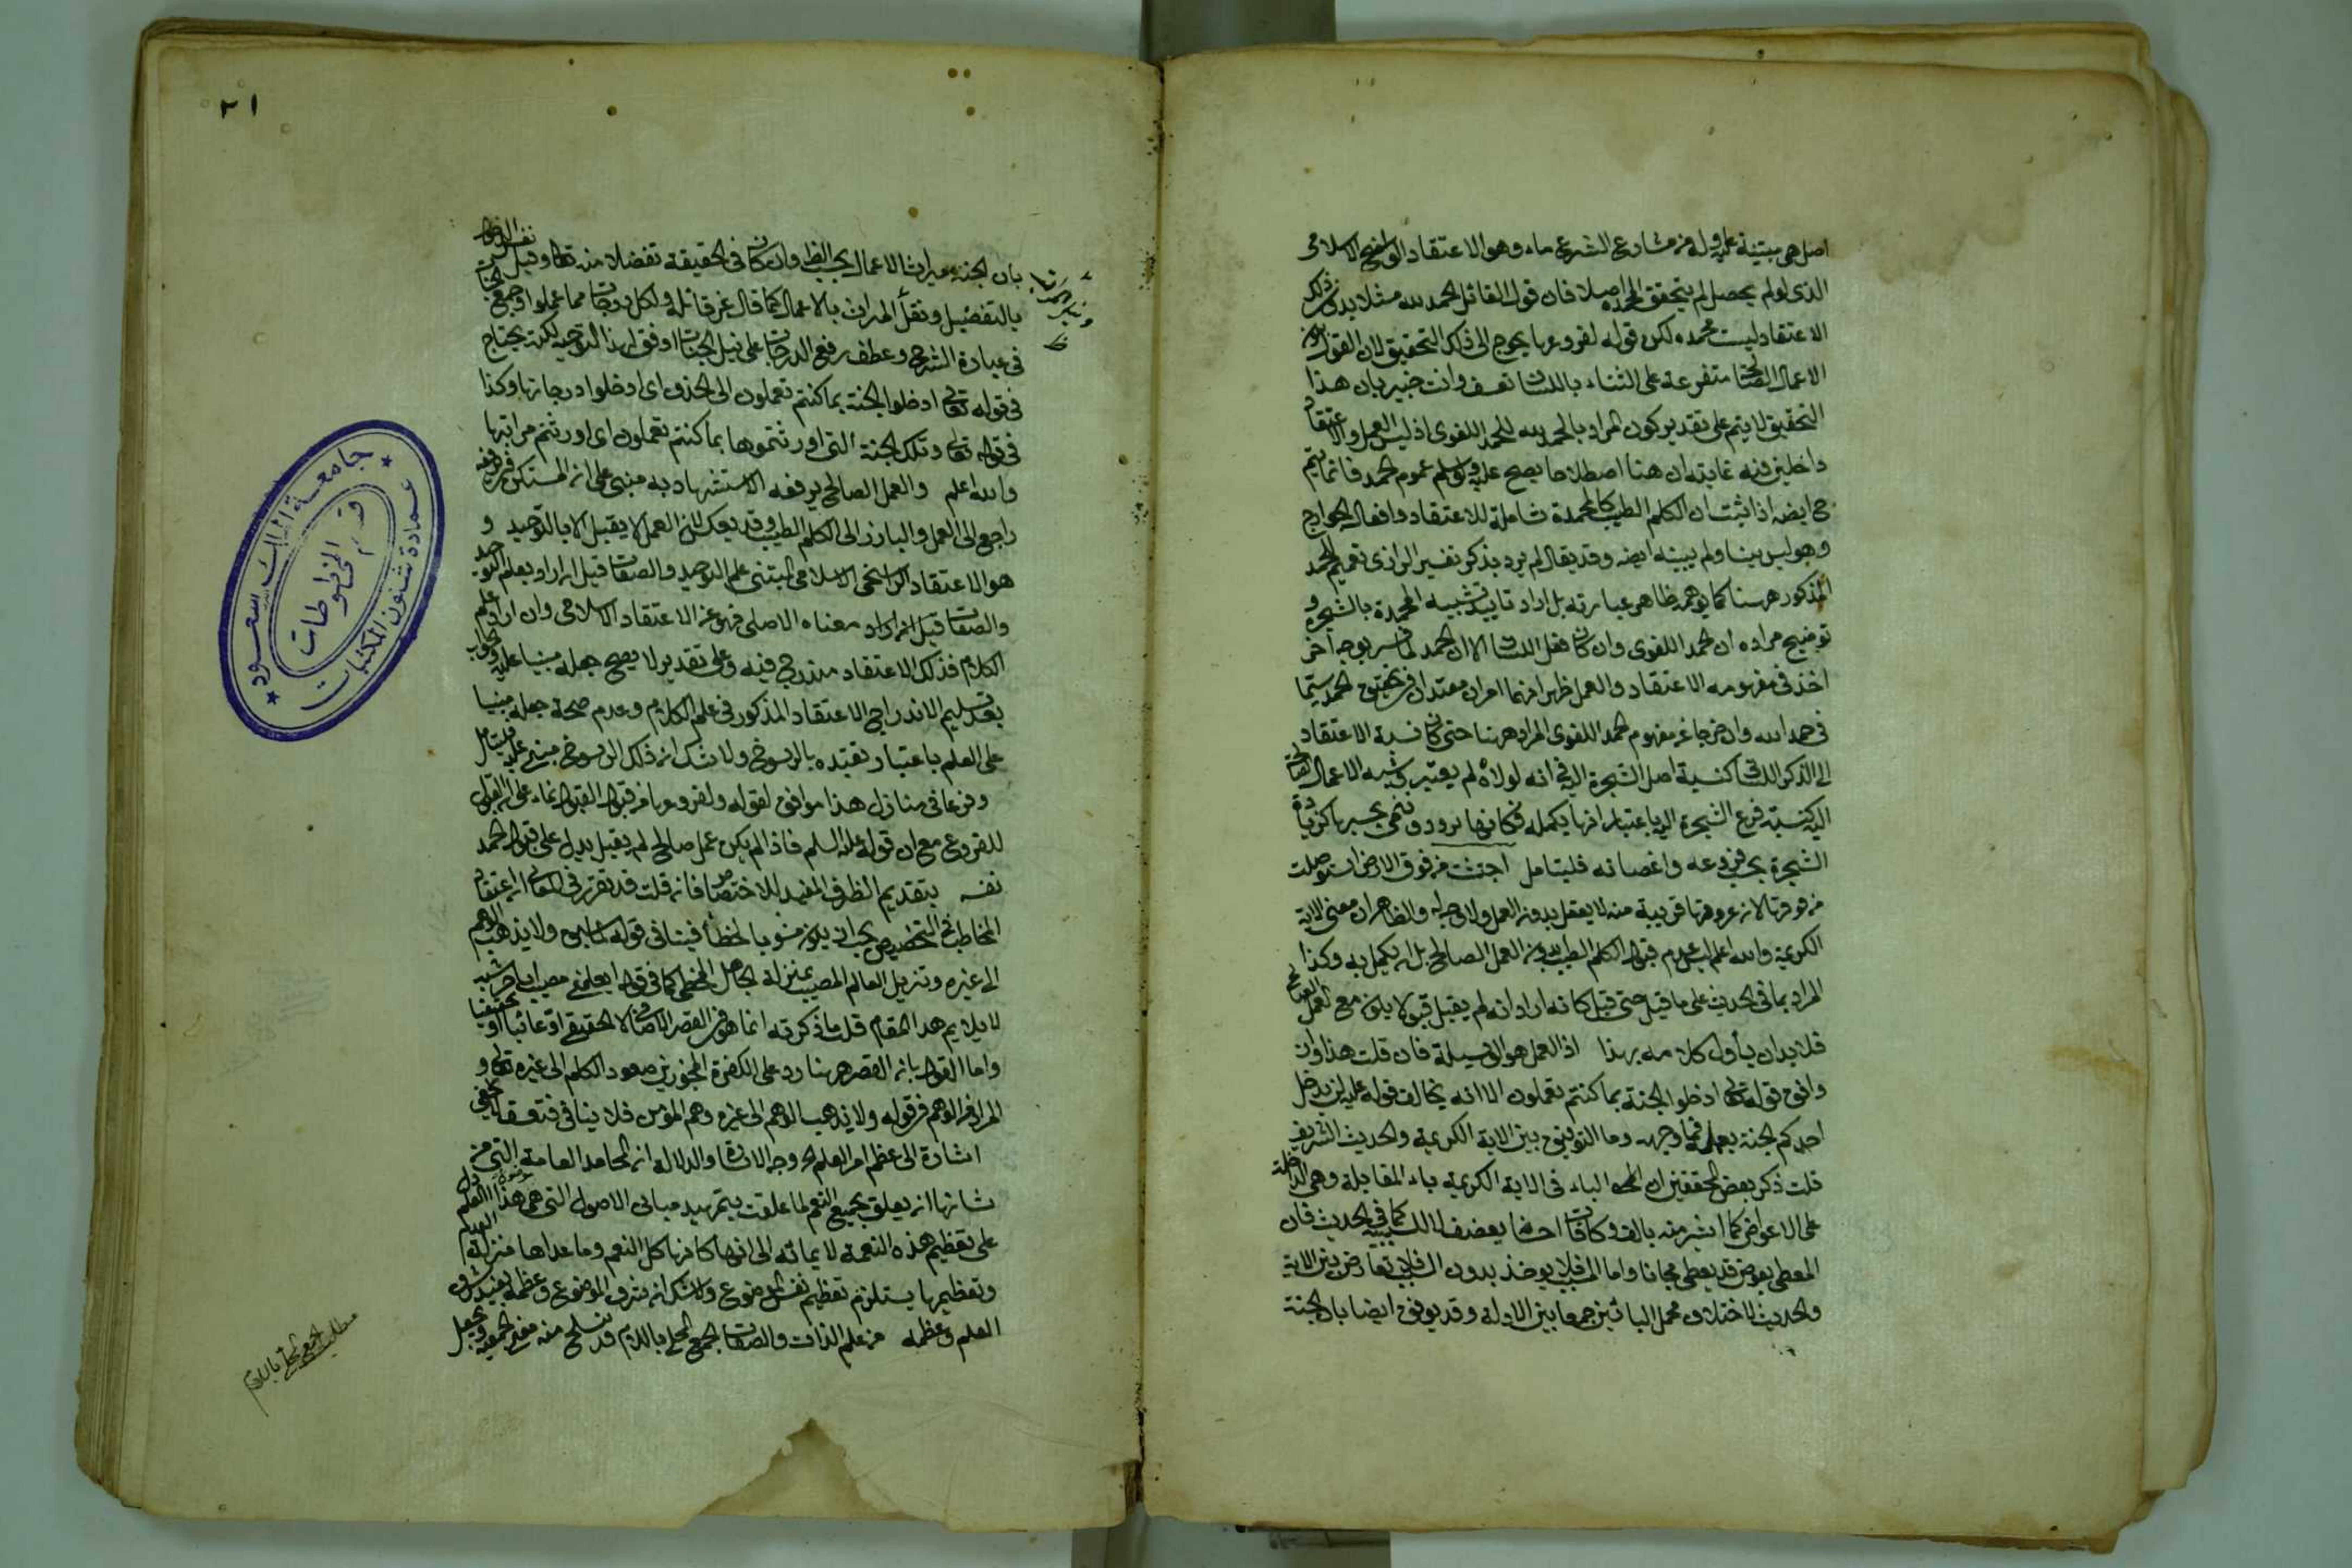 اصل هى مبتنية عليه وله من مشارع الشرع ماء وهو الاعتقاد الراسخ الاسلامى
الذى لو لم يحصل لم يتحقق المحمدة اصلا فان قول القائل الحمد لله مثلا بدون ذلك
الاعتقاد ليست محمده لكن قوله لفروعها يحوج الى ذلك التحقيق لان القول بكون
الاعمال الصالحات متفرعة على الثناء باللسان تعسف وانت خبير بان هذا
التحقيق لا يتم على تقدير كون المراد بالحمد لله الحمد اللغوى اذ ليس العمل والاعتقاد
داخلين فيه غايته ان هنا اصطلاحا يصح عليه ولو سلم عموم الحمد فانما يتم
ح ايضه اذا ثبت ان الكلم الطيب كالمحمدة شاملة للاعتقاد وافعال الجوارح
وهو ليس بينا ولم يبينه ايضه وقد يقال لم يرد بذكر تفسير الرازى تعميم الحمد
المذكور ههنا كما يوهمه ظاهر عبارته بل اراد تاييد تشبيه المحمدة بالشجرة و
توضيح مراده ان الحمد اللغوى وان كان فعل اللسان الا ان الحمد لما فسر بوجه آخر
اخذ فى مفهومه الاعتقاد والعمل ظهر انهما امران معتدان فى تحقق الحمد سيما
فى حمد الله وان خرجا عن مفهوم الحمد اللغوى المراد ههنا حتى كان نسبة الاعتقاد
الى الذكر اللسانى كنسبة اصل الشجرة اليها فى انه لولاه لم يعتبر ونسبة الاعمال الصالحة
اليه كنسبة فرع الشجرة اليها باعتبار انها يكمله فكانها برود وتنمى بحسبها كزيادة
الشجرة بحسب فروعه واغصانه فليتامل اجتثت من فوق الارض استوصلت
من فوقها لان عروقها قريبة منه لا يعقل بدون العمل ولا وجه له والظاهر ان معنى الاية
الكريمة والله اعلم ليس عدم قبول الكلم الطيب بدون العمل الصالح بل انه يكمل به وكذا
المراد بما فى الحديث على ما قيل حتى قيل كانه اراد انه لم يقبل قبولا يكون مع العمل الصالح
فلا بد ان يأول كلامه بهذا اذ العمل هو الوسيلة فان قلت هذا وان
وافق قوله تعالى ادخلوا الجنة بما كنتم تعملون الا انه يخالف قوله عليه لن يدخل
احدكم الجنة بعمله فما وجهه وما التوفيق بين الاية الكريمة والحديث الشريف
قلت ذكر بعض المحققين ان الباء فى الاية الكريمة باء المقابلة وهى الداخلة
على الاعواض كما اشتريته بالف وكافأت احسانه بضعف لا للسببية كما فى الحديث فان
المعطى بعوض قد يعطى مجانا واما المسبب فلا يوخذ بدون السبب فلا تعارض بين الاية
والحديث لاختلاف محمل البائين جمعا بين الادلة وقد يوفق ايضا بان الجنة
٢١
بان الجنة ميراث الاعمال بحسب الظ وان كان فى الحقيقة تفضلا منه تعالى وقيل نفس الدخول
بالتفضيل ونقل المراتب بالاعمال كما قال عز قائلا ولكل درجات مما عملوا وجمع الجنات
فى عبارة الشرح وعطف رفع الدرجات على نيل الجنات اوفق لهذا التوجيه لكنه يحتاج
فى قوله تعالى ادخلوا الجنة بما كنتم تعملون الى الحذف اى ادخلوا درجاتها وكذا
فى قوله تعالى وتلك الجنة التى اورثتموها بما كنتم تعملون اى اورثتم مراتبها
والله اعلم والعمل الصالح يرفعه الاستشهاد به مبنى على ان المستكن فى يرفعه
راجع الى العمل والبارز الى الكلم الطيب وقد يعكس لان العمل لا يقبل الا بالتوحيد و
هو الاعتقاد الراسخى الاسلامى المبتنى علم التوحيد والصفات قيل ان اراد بعلم التوحيد
والصفات قيل ان اراد معناه الاصلى فهو عين الاعتقاد الاسلامى وان اراد علم
الكلام فذلك الاعتقاد مندرج فيه وعلى تقدير لا يصح جعله مبنيا عليه والجواب
بعد تسليم الاندراج الاعتقاد المذكور فى علم الكلام وعدم صحة جعله مبنيا
على العلم باعتبار تقيده بالرسوخ ولا شك ان ذلك الرسوخ مبنى عليه فليتامل
وفرعا فى منازل هذا موافق لقوله ولفروعها من قبول القبول نماء على ان القبول
للفروع مع ان قوله عليه السلم فاذا لم يكن عمل صالح لم يقبل يدل على قبول الحمد
نفسه بتقديم الظرف المفيد للاختصاص فان قلت قد تقرر فى المعانى ان اعتقاد
المخاطب فى التخصيص يجب ان يكون مشوبا بالخطأ فينافى قوله ولا يذهب الوهم
الى غيره وتنزيل العالم المصيب بمنزلة الجاهل المخطى كما فى قوله
لا يلايم هذا المقام قلت ما ذكرته انما هو فى القصر الاضافى لا الحقيقى ادعائيا او تحقيقيا
واما القول بان القصر ههنا رد على الكفرة المجوزين صعود الكلم الى غيره تعالى و
المراد من الوهم فى قوله ولا يذهب الوهم الى غيره وهم المؤمن فلا ينافى فتعسف
اشارة الى عظم امر العلم وجه الاشارة والدلالة ان المحامد العامة التى من
شانها ان يعلق بجميع النعم لما علقت بتمهيد مبانى الاصول التى هى هذا العلم دل
على تعظيم هذه النعمة لايمائه الى انها كانها كل النعم وما عداها منزلة العدم
وتعظيمها يستلزم تعظيم نفس الموضوع ولا شك ان شرف الموضوع وعظمه يفيد شرف
العلم وعظمه من علم الذات والصفات الجمع المحلى باللام قد تنسلخ منه معنى الجمعية ويجعل
مطلب الجمع المحلى باللام
جامعة الملك سعود
عمادة شئون المكتبات
قسم المخطوطات